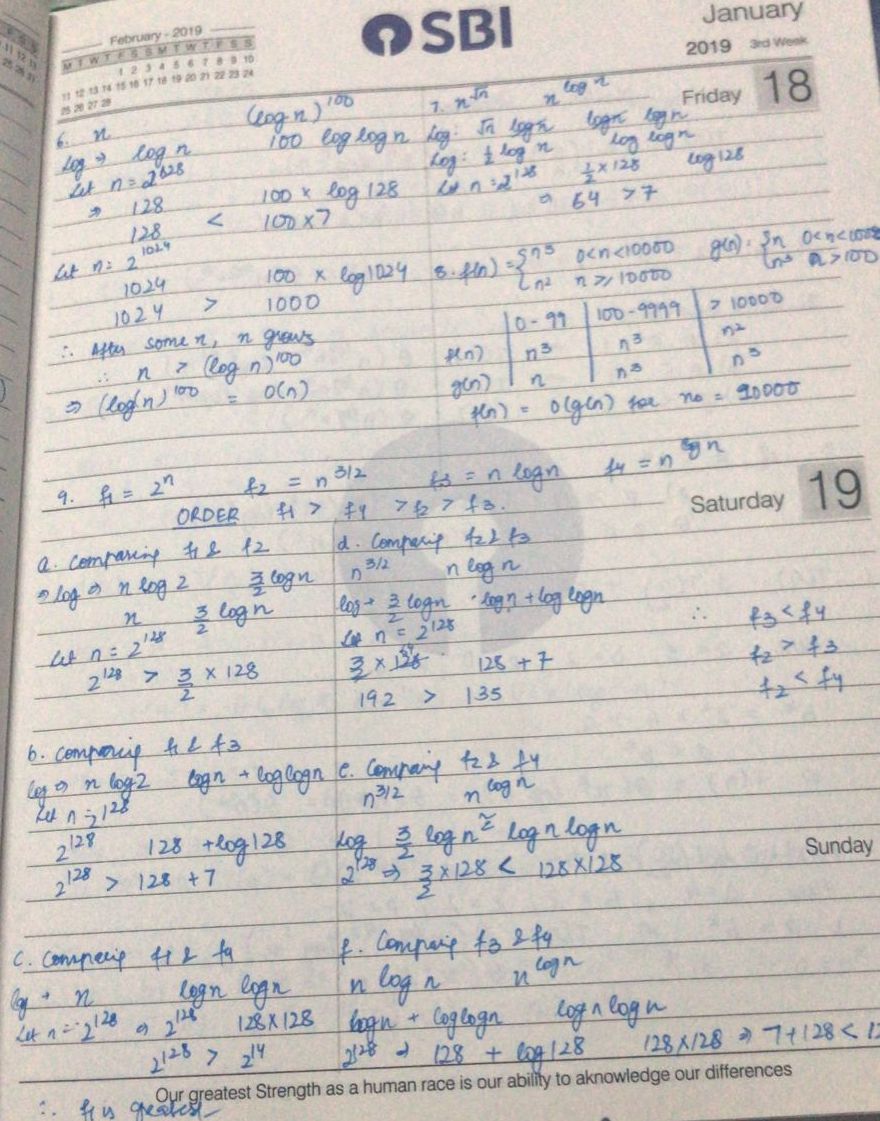 February - 2019
M T W T F S S M T W T F S S
1 2 3 4 5 6 7 8 9 10
11 12 13 14 15 16 17 18 19 20 21 22 23 24
25 26 27 28
SBI
January
2019 3rd Week
Friday 18
6. n (log n)^100
log ⇒ log n 100 log log n
Let n = 2^128
⇒ 128 100 × log 128
128 < 100×7
Let n = 2^1024
1024 100 × log 1024
1024 > 1000
∴ After some n, n grows
∴ n > (log n)^100
⇒ (log n)^100 = O(n)
7. n^√n n^log n
Log: √n log n log n log n
Log: 1/2 log n log log n
Let n = 2^128 1/2 × 128 log 128
⇒ 64 > 7
8. f(n) = { n^3 0<n<10000 g(n) = { n 0<n<100
n^2 n ≥ 10000 n^3 n > 100
0-99 | 100-9999 | > 10000
f(n) | n^3 | n^3 | n^2
g(n) | n | n^3 | n^3
f(n) = O(g(n) for n0 = 10000
Saturday 19
9. f1 = 2^n f2 = n^3/2 f3 = n log n f4 = n^log n
ORDER f1 > f4 > f2 > f3.
a. Comparing f1 & f2
⇒ log ⇒ n log 2 3/2 log n
n 3/2 log n
Let n = 2^128
2^128 > 3/2 × 128
b. Comparing f1 & f3
log ⇒ n log 2 log n + log log n
Let n = 2^128
2^128 128 + log 128
2^128 > 128 + 7
c. Comparing f1 & f4
log → n log n log n
Let n = 2^128 ⇒ 2^128 128×128
2^128 > 2^14
∴ f1 is greatest
d. Comparing f2 & f3
n^3/2 n log n
log → 3/2 log n log n + log log n
Let n = 2^128
3/2 × 128 128 + 7
192 > 135
∴ f3 < f4
f2 > f3
f2 < f4
e. Comparing f2 & f4
n^3/2 n^log n
Log 3/2 log n log n log n
2^128 ⇒ 3/2 × 128 < 128×128
Sunday
f. Comparing f3 & f4
n log n n^log n
log n + log log n log n log n
2^128 ⇒ 128 + log 128 128×128 ⇒ 7+128 <
Our greatest Strength as a human race is our ability to aknowledge our differences